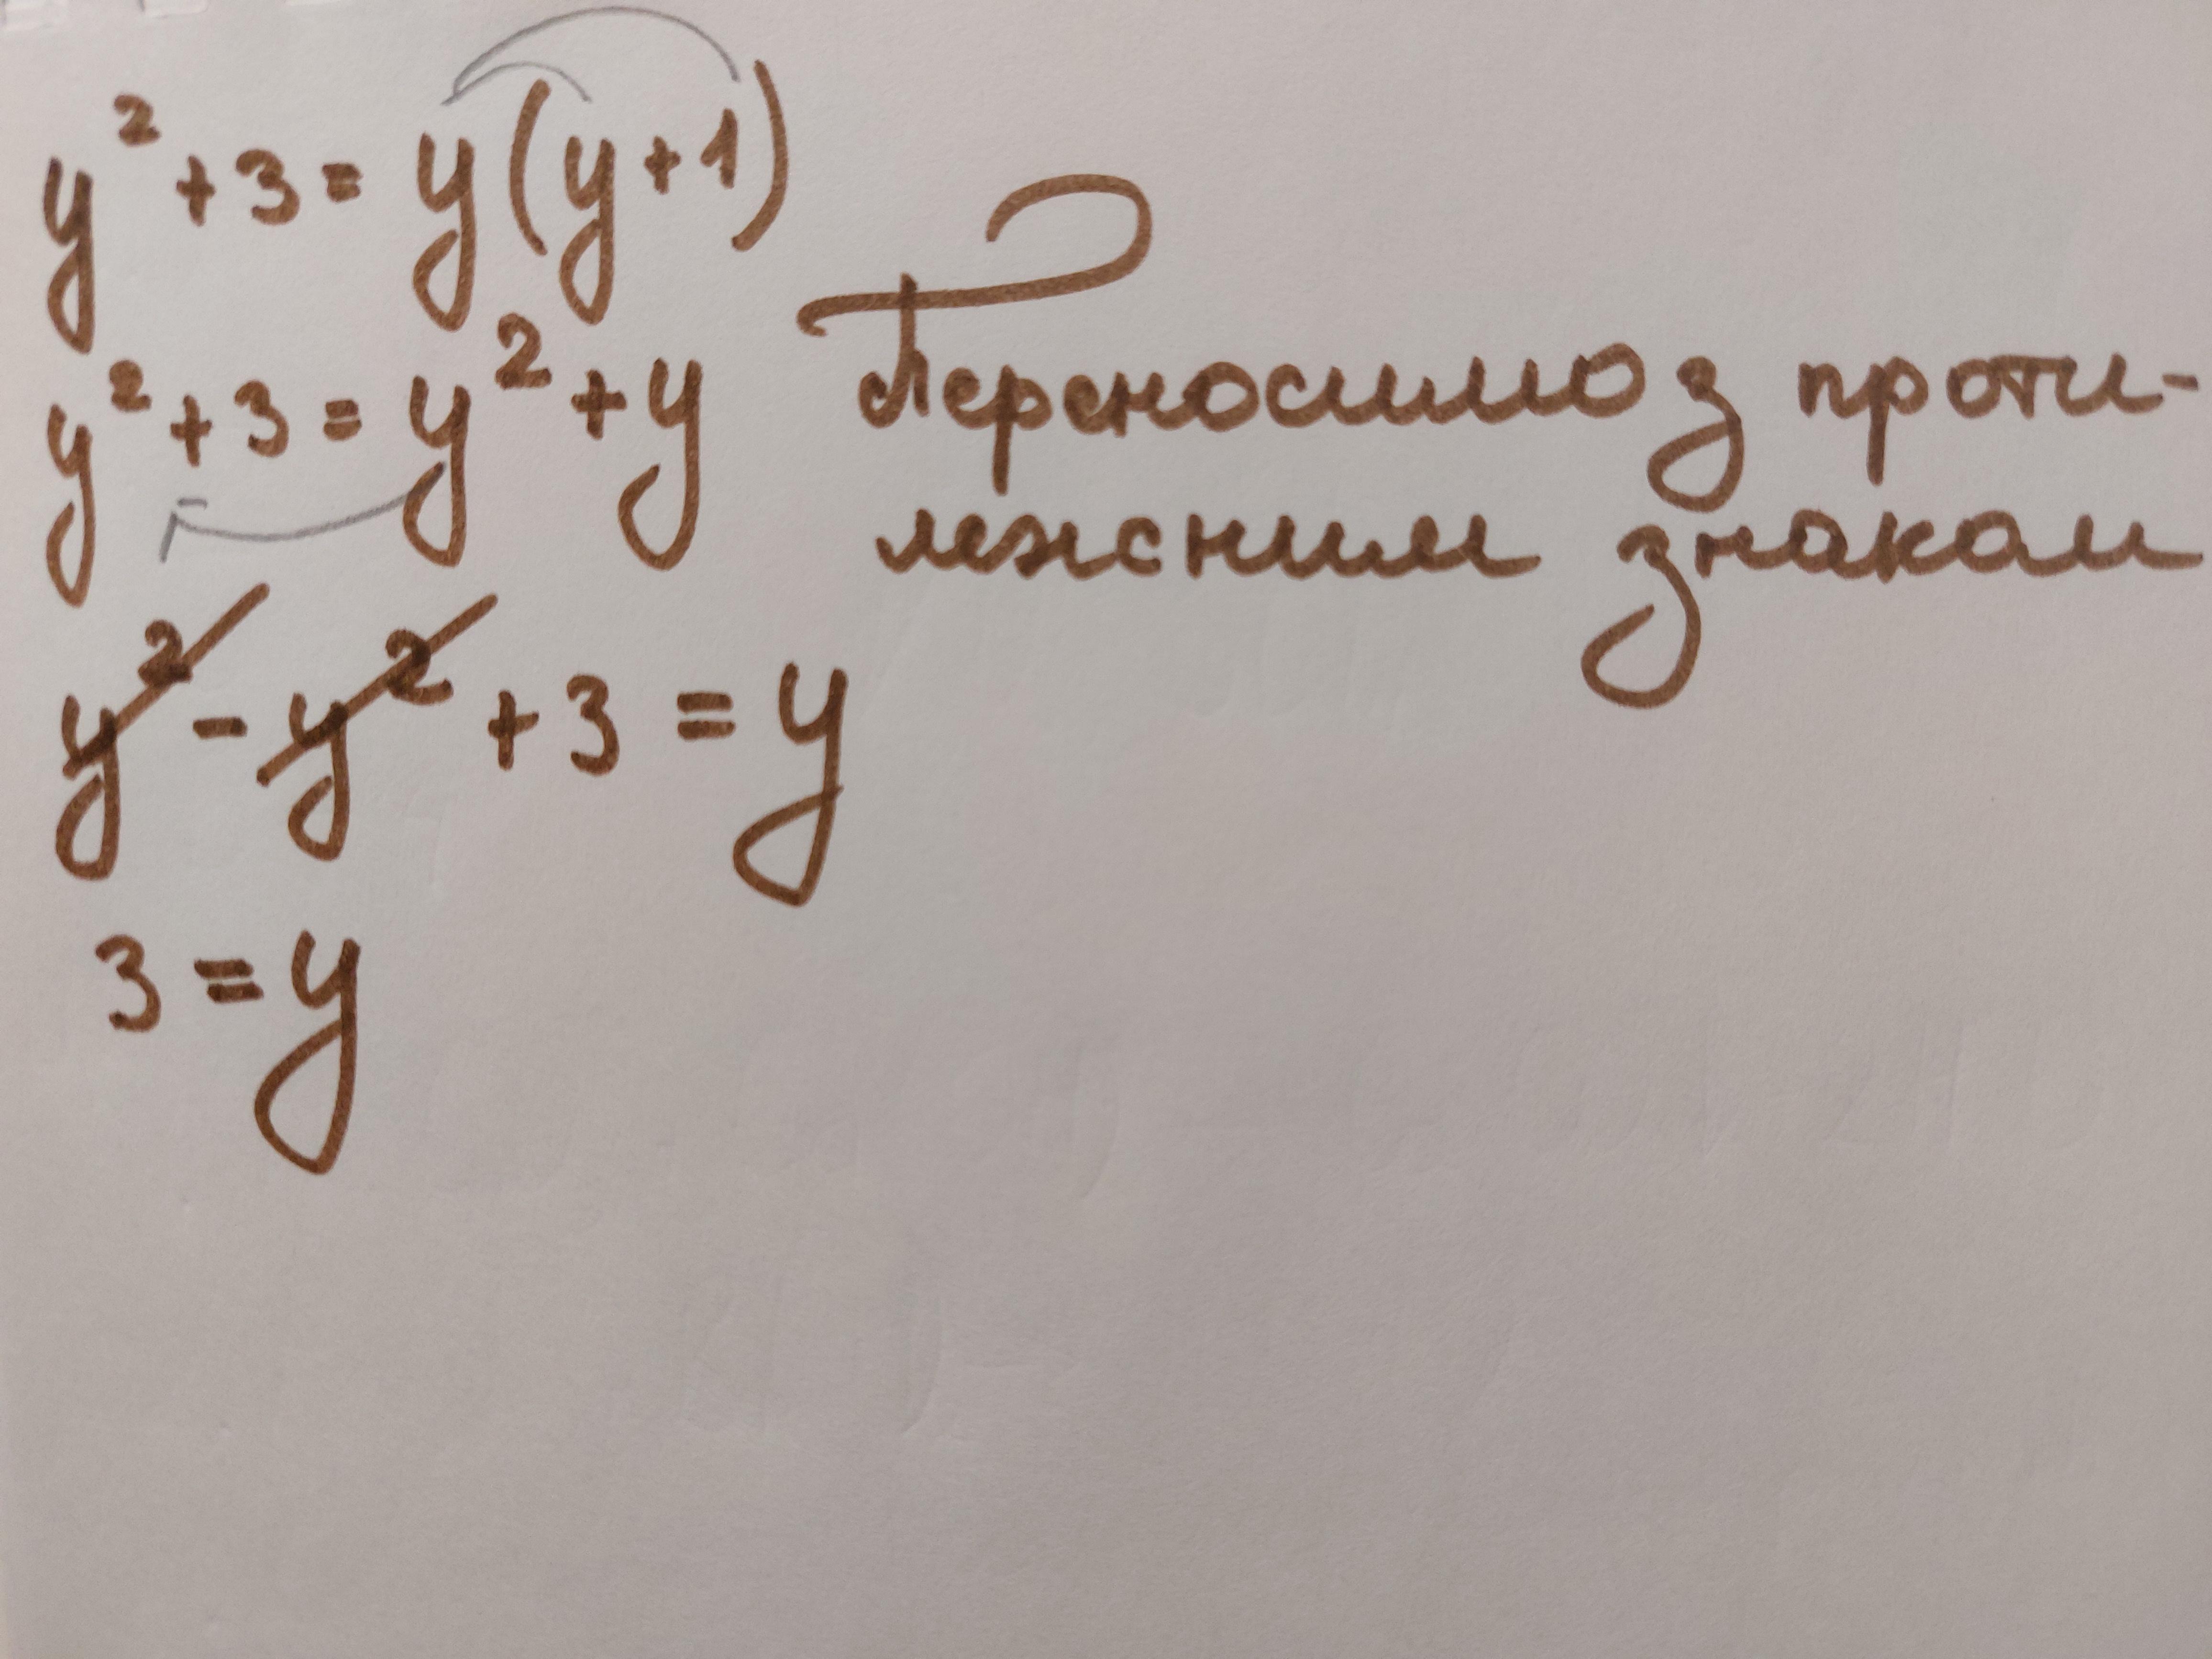 y² + 3 = y(y+1)
y² + 3 = y² + y
Переносимо з проти-
лежним знаком
y² - y² + 3 = y
3 = y